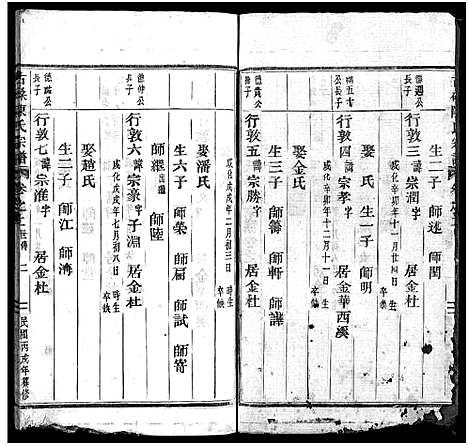 德遇公
長子
行敦三 諱 宗潤 字 居金杜
成化辛卯年十一月廿四日 時生 卒缺
生二子 師述 師閔
行敦四 諱 宗孝 字 居金華西溪
成化辛卯年十二月十一日 時生 卒缺
娶 氏 生一子 師明
德貴公
長子
行敦五 諱 宗勝 字 居金杜
娶金氏
生三子 師籌 師軒 師譁
成化戊戌年二月初三日 時生 卒缺
娶潘氏
生六子 師榮 師扁 師試 師笴
師纓 師陸
德仲公
長子
行敦六 諱 宗豪 字 子淵 居金杜
成化戊戌年七月初八日 時生 卒缺
娶趙氏
生二子 師江 師濤
德瑞公
長子
行敦七 諱 宗淮 字 居金杜
陳氏宗譜
民國丙戌年纂修